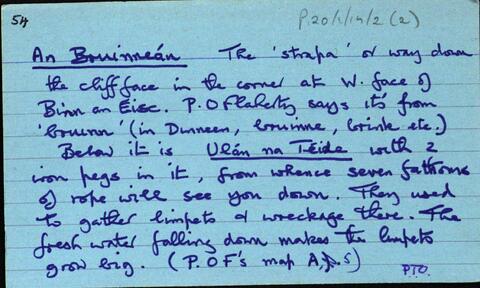 54
P.20/1/14/2 (a)
An Bruinneán The 'strapa' or way down
the cliff face in the corner at W. face of
Binn an Eisc. P. O Flaherty says its from
'bruinn' (in Dinneen, bruinne, brink etc.)
Below it is Ulán na Téide with 2
iron pegs in it, from whence seven fathoms
of rope will see you down. They used
to gather limpets & wreckage there. The
fresh water falling down makes the limpets
grow big. (P. OF's map A, 5)
PTO.